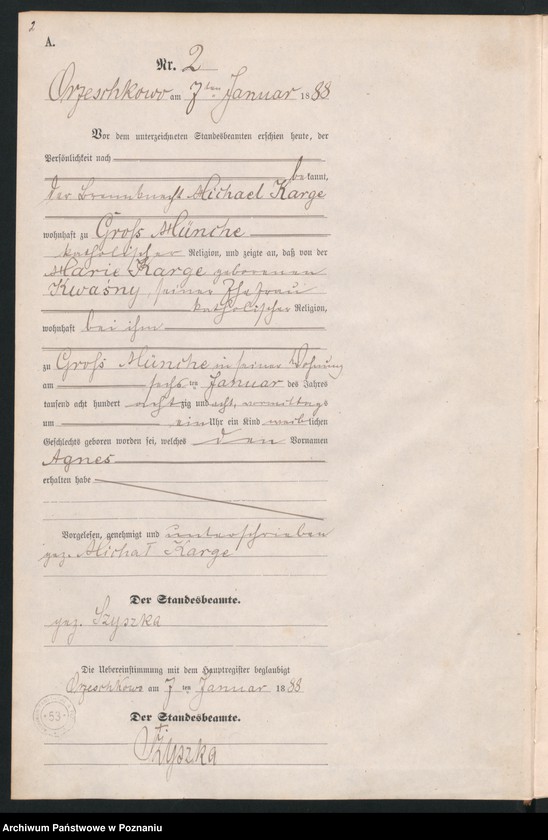 2
A.
Nr. 2
Orzeschkowo am 7ten Januar 1888
Vor dem unterzeichneten Standesbeamten erschien heute, der
Persönlichkeit nach
bekannt,
der Brennknecht Michael Karge
wohnhaft zu Groß Münche
katholischer Religion, und zeigte an, daß von der
Marie Karge geborenen
Kwaśny, seiner Ehefrau
katholischer Religion,
wohnhaft bei ihm
zu Groß Münche in seiner Wohnung
am sechsten Januar des Jahres
tausend acht hundert achtzig und acht, vormittags
um ein Uhr ein Kind weiblichen
Geschlechts geboren worden sei, welches den Vornamen
Agnes
erhalten habe
Vorgelesen, genehmigt und unterschrieben
gez. Michał Karge
Der Standesbeamte.
gez. Szyszka
Die Uebereinstimmung mit dem Hauptregister beglaubigt
Orzeschkowo am 7ten Januar 1888
Der Standesbeamte.
Szyszka
53
Archiwum Państwowe w Poznaniu